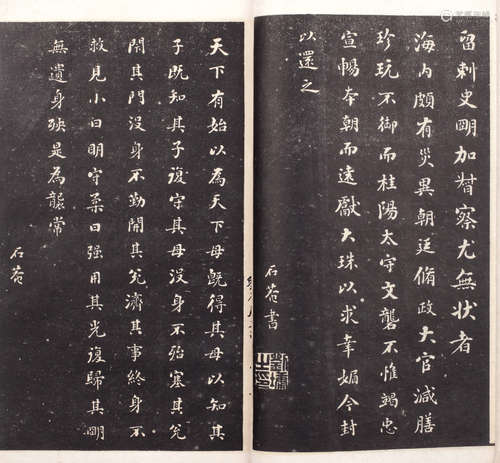 留刺史明加督察尤無狀者
海内頗有災異朝廷脩政大官減膳
珍玩不御而桂陽太守文礱不惟竭忠
宣暢本朝而遠獻大珠以求幸媚今封
以還之
石菴書
劉墉之印
天下有始以為天下母既得其母以知其
子既知其子復守其母没身不殆塞其兑
閉其門没身不勤開其兑濟其事終身不
救見小曰明守柔曰强用其光復歸其明
無遺身殃是為襲常
石菴